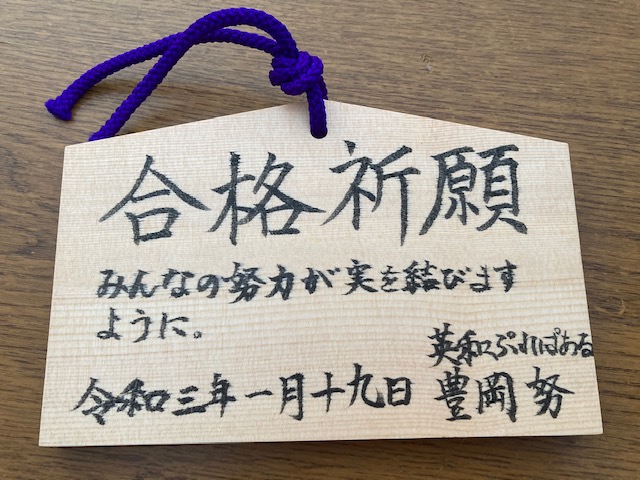 合格祈願
みんなの努力が実を結びます
ように。
英和ぷれぱある
令和三年一月十九日 豊岡努